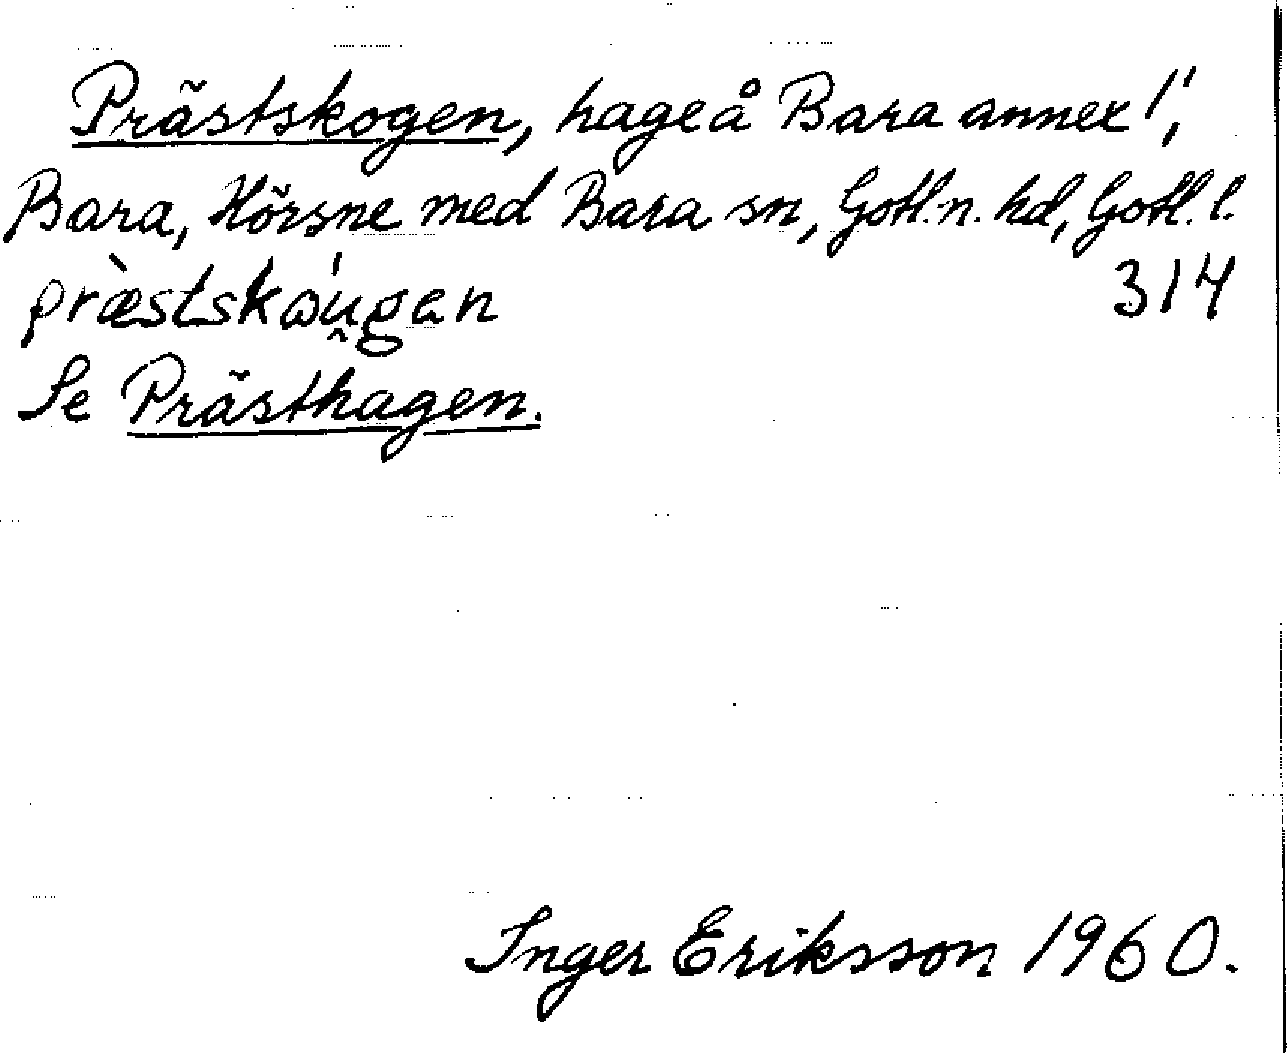 Prästskogen, hage å Bara annex 1¹,
Bara, Hörsne med Bara sn, Gotl. n. hd, Gotl. l.
præ̀stskω̨u̯gən 314
Se Prästhagen.
Inger Eriksson 1960.